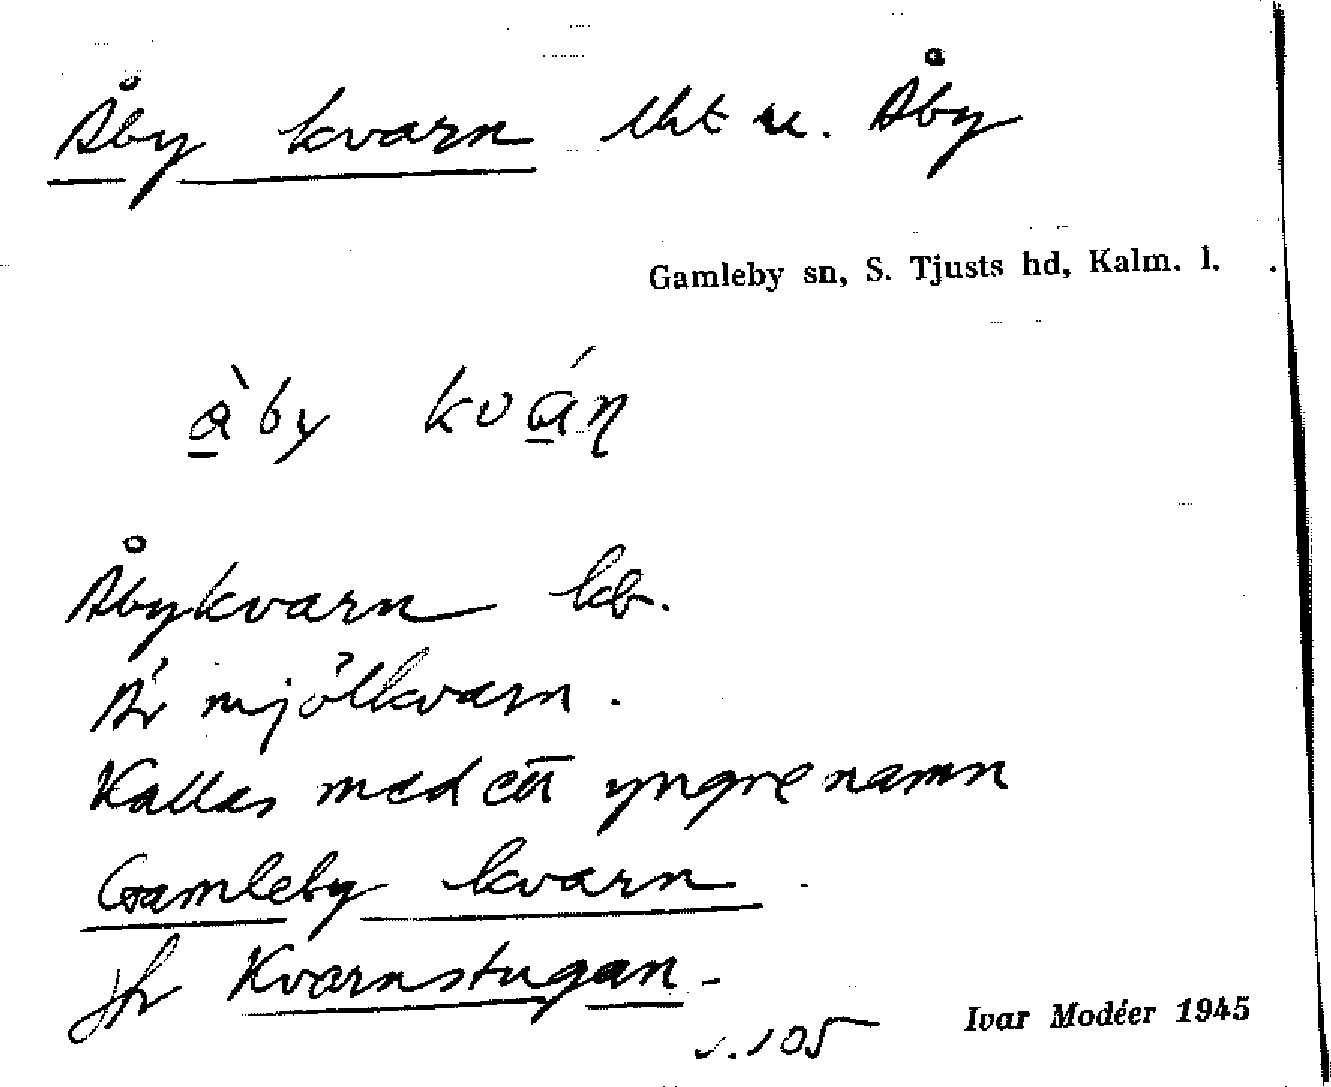 Åby kvarn lht u. Åby
Gamleby sn, S. Tjusts hd, Kalm. l.
Åbykvarn kb.
Är mjölkvarn.
Kallas med ett yngre namn
Gamleby kvarn.
Jfr Kvarnstugan.
s. 105
Ivar Modéer 1945